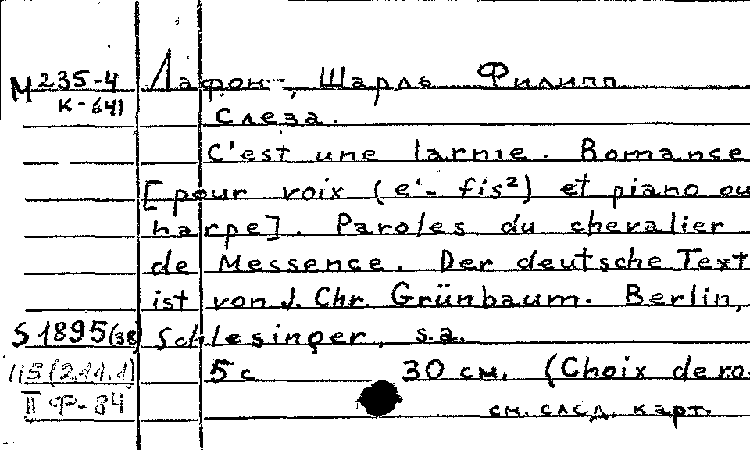 М 235-4 Лафон, Шарль Филипп
К-641
Слеза.
C'est une larnie. Romance
[pour voix (e¹- fis²) et piano ou
harpe]. Paroles du chevalier
de Messence. Der deutsche Text
ist von J. Chr. Grünbaum. Berlin,
S 1895(38) Schlesinger, s.a.
115(2.11.1) 5 с 30 см. (Choix de ro-
II Ф-84 см. след. карт.